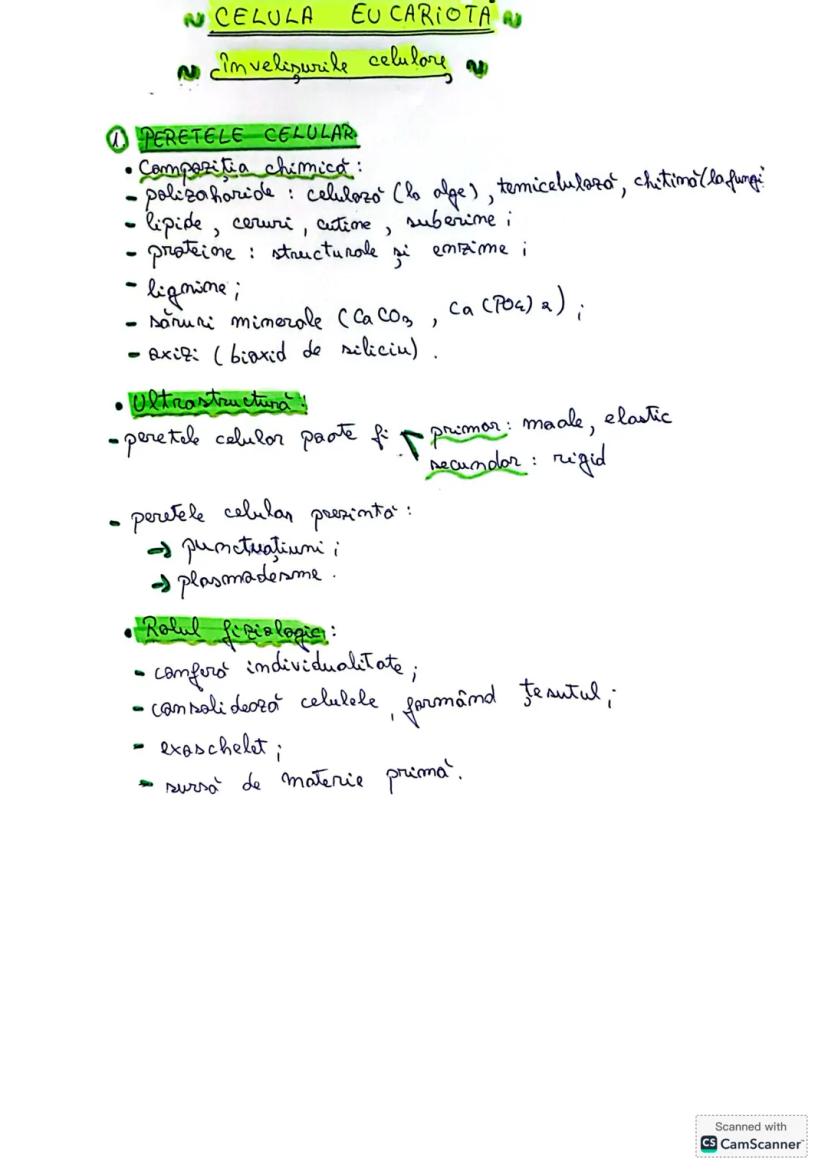 CELULA EUCARIOTĂ
Învelișurile celulare
1. PERETELE CELULAR
• Compoziția chimică:
- polizaharide : celuloză (la alge), temiceluloză, chitină (la fungi
- lipide, ceruri, cutine, suberine;
- proteine : structurale și enzime;
- lignine;
- săruri minerale (CaCO3, Ca(PO4)2);
- oxizi (bioxid de siliciu).
• Ultrastructură:
- peretele celular poate fi primar: moale, elastic
secundar: rigid
- peretele celular prezintă:
→ punctuațiuni;
→ plasmadesme.
• Rolul fiziologic:
- conferă individualitate;
- consolidează celulele, formând țesutul;
- exoschelet;
- sursă de materie primă.
Scanned with
CS CamScanner